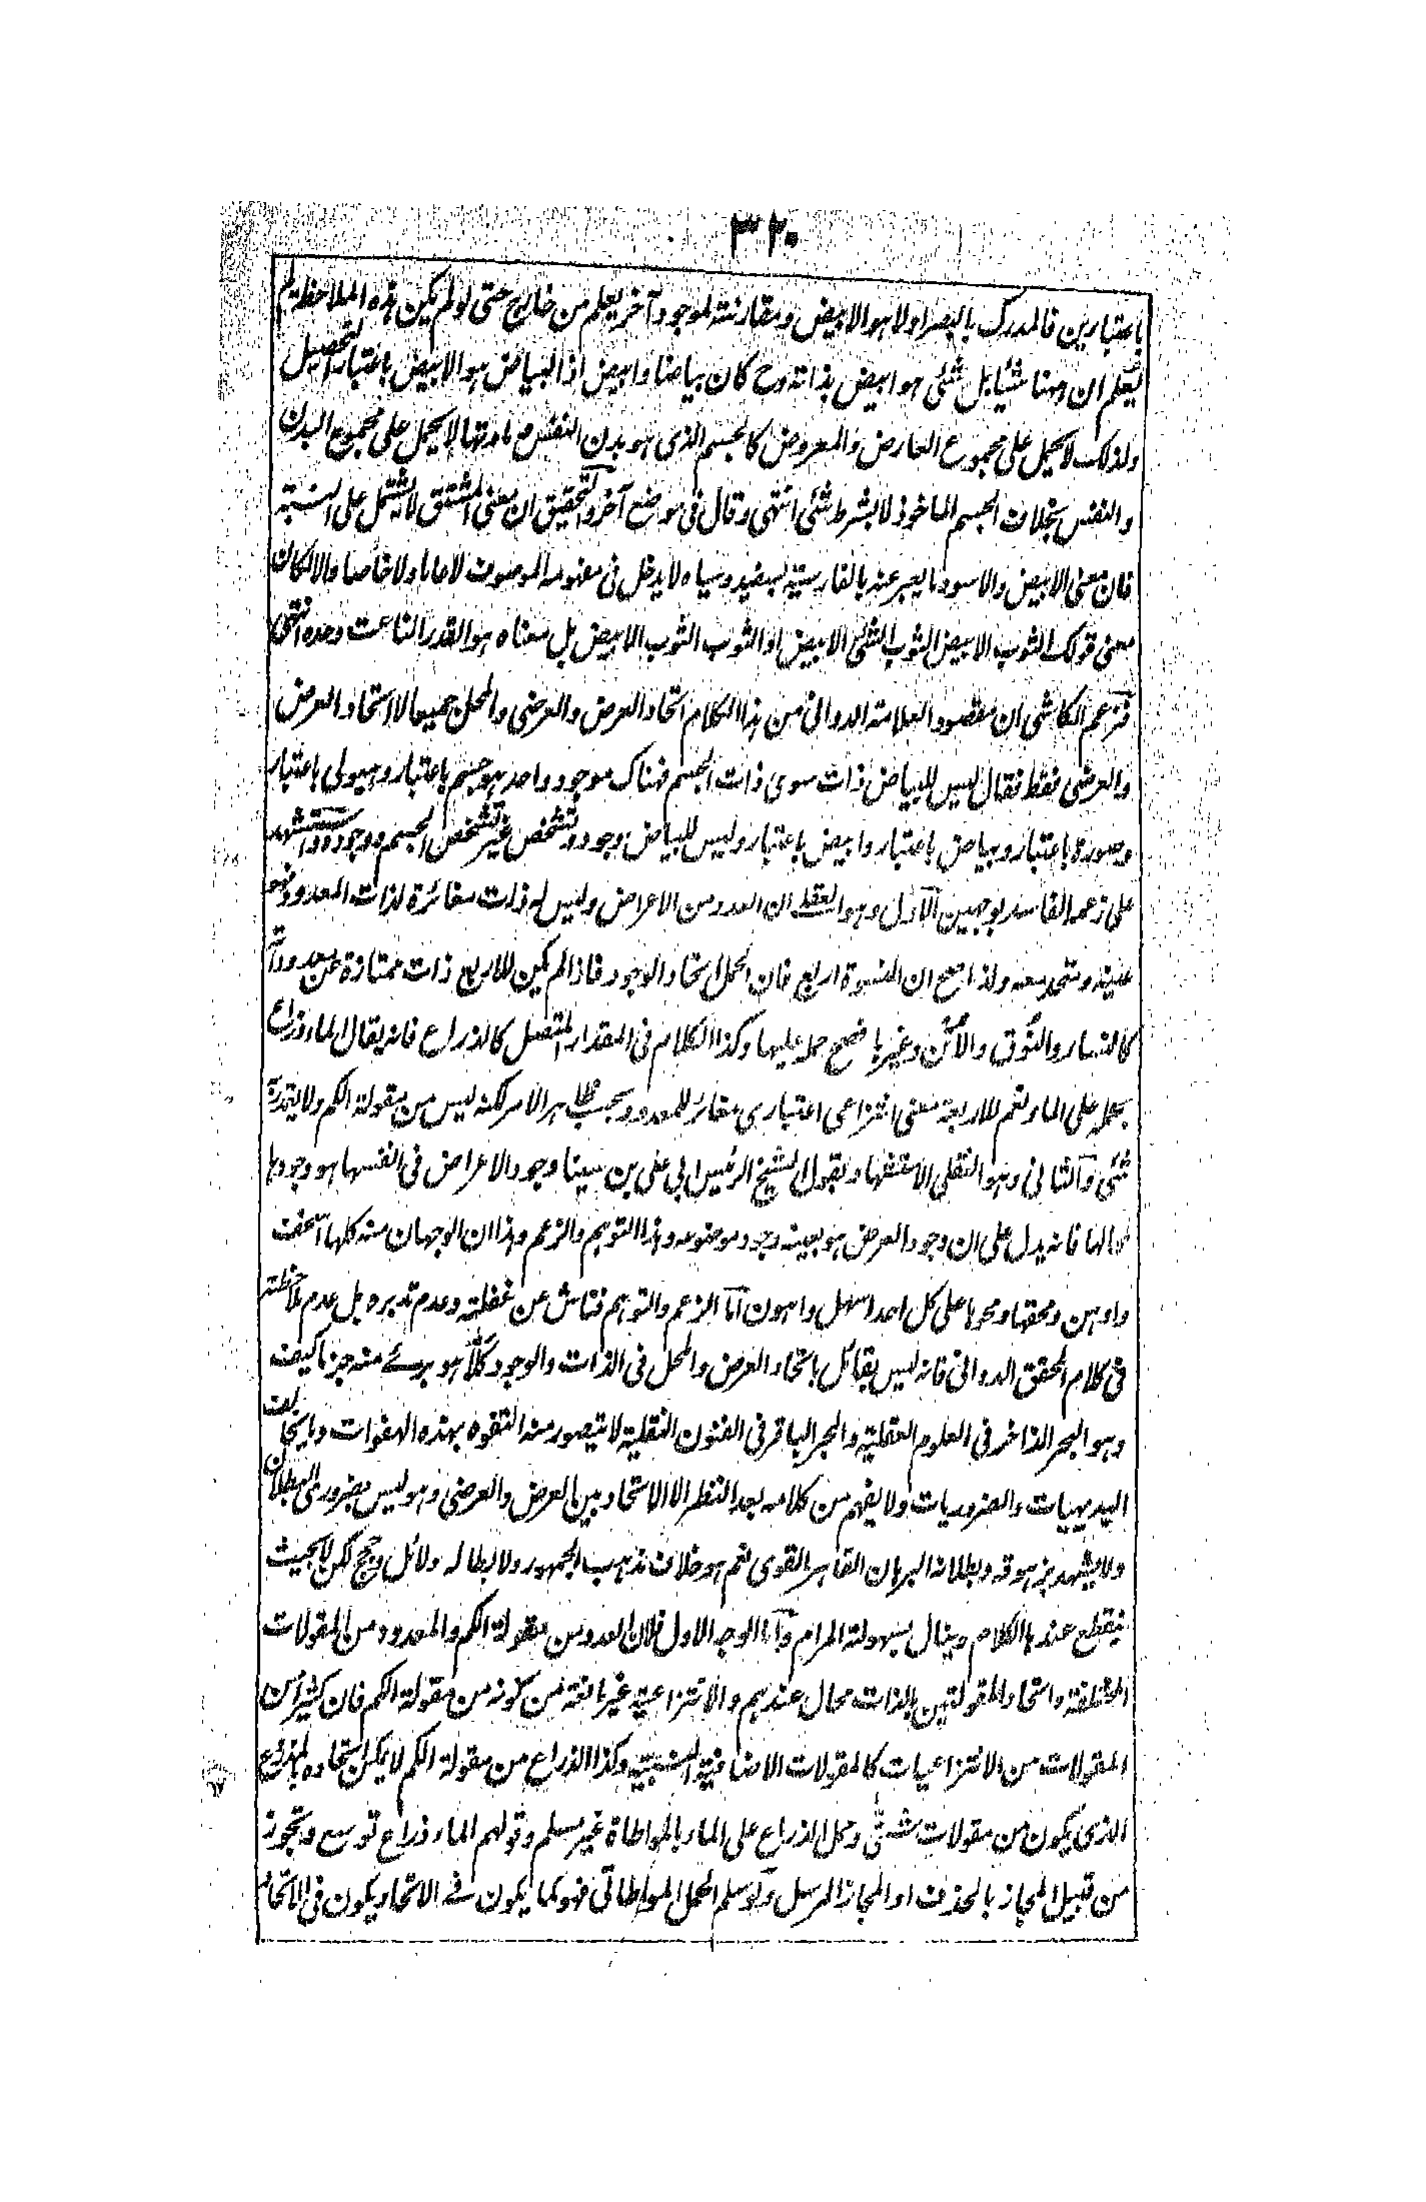 ٣٢٠
باعتبارين فالمدرك بالبصر اولا هو الابيض ومقارنته لموجود آخر يعلم من خارج حتى لو لم يكن هذه الملاحظة لم
يعلم ان ههنا شيئا بل شئ هو ابيض بذاته وح كان بياضا وابيض اذ البياض هو الابيض باعتبار التحصيل
ولذلك لا يحمل على مجموع العارض والمعروض كالجسم الذى هو بدن النفس مع مادتها لا يحمل على مجموع البدن
والنفس بخلاف الجسم الماخوذ لا بشرط شئ انتهى وقال فى موضع آخر والتحقيق ان معنى المشتق لا يشتمل على النسبة
فان معنى الابيض والاسود ما يعبر عنه بالفارسية بسفيد وسياه لا يدخل فى مفهومه الموصوف لا عاما ولا خاصا والا لكان
معنى قولك الثوب الابيض الثوب الشئ الابيض او الثوب الثوب الابيض بل معناه هو القدر الناعت وحده انتهى
فزعم الكاشى ان مقصود العلامة الدوانى من هذا الكلام اتحاد العرض والعرضى والمحل جميعا لا اتحاد العرض
والعرضى فقط فقال ليس للبياض ذات سوى ذات الجسم فهناك موجود واحد هو جسم باعتبار وهيولى باعتبار
وصورة باعتبار وبياض باعتبار وابيض باعتبار وليس للبياض وجود وتشخص غير تشخص الجسم ووجوده واستشهد
على زعمه الفاسد بوجهين الاول وهو العقلى ان العدد من الاعراض وليس له ذات مغائرة لذات المعدود فهو
عينه ومتحد معه ولذا صح ان النسوة اربع فان الحمل اتحاد الوجود فاذا لم يكن للاربع ذات ممتازة عن معدوداته
كالنساء والنوق والاتن وغيرها فصح حمله عليها وكذا الكلام فى المقدار المتصل كالذراع فانه يقال الماء ذراع
بحمله على الماء ونعم للاربعة معنى انتزاعى اعتبارى مغائر للمعدود بحسب ظاهر الامر لكنه ليس من مقولة الكم ولا يتقدر به
شئ والثانى وهو النقلى الاستشهاد بقول الشيخ الرئيس ابى على بن سينا وجود الاعراض فى انفسها هو وجودها
لمحالها فانه يدل على ان وجود العرض هو بعينه وجود موضوعه وهذا التوهم والزعم وهذان الوجهان منه كلها اسخف
واوهن ومحقها ومحوها على كل احد اسهل واهون اما الزعم والتوهم فناش عن غفلته وعدم تدبره بل عدم ملاحظته
فى كلام المحقق الدوانى فانه ليس بقائل باتحاد العرض والمحل فى الذات والوجود كلا هو برئ منه جزما كيف
وهو البحر الذاخر فى العلوم العقلية والحبر الباقر فى الفنون النقلية لا يتصور منه التفوه بهذه الهفوات وما يخالف
البديهيات والضروريات ولا يفهم من كلامه بعد النظر الا الاتحاد بين العرض والعرضى وهو ليس بضرورى البطلان
ولا يشهد بزهوقه وبطلانه البرهان القاهر القوى نعم هو خلاف مذهب الجمهور ولابطاله دلائل وحجج لكن لا بحيث
ينقطع عندها الكلام وينال بسهولة المرام واما الوجه الاول فلان العدد من مقولة الكم والمعدود من المقولات
المختلفة واتحاد المقولتين بالذات محال عندهم والانتزاعية غير مانعة من كونه من مقولة الكم فان كثيرا من
المقولات من الانتزاعيات كالمقولات الاضافية النسبية وكذا الذراع من مقولة الكم لا يمكن اتحاده بالمذروع
الذى يكون من مقولات شتى وحمل الذراع على الماء بالمواطاة غير مسلم وقولهم الماء ذراع توسع وتجوز
من قبيل المجاز بالحذف او المجاز المرسل ولو سلم الحمل المواطاتى فهو كما يكون فى الاتحاد يكون فى الاتحاد